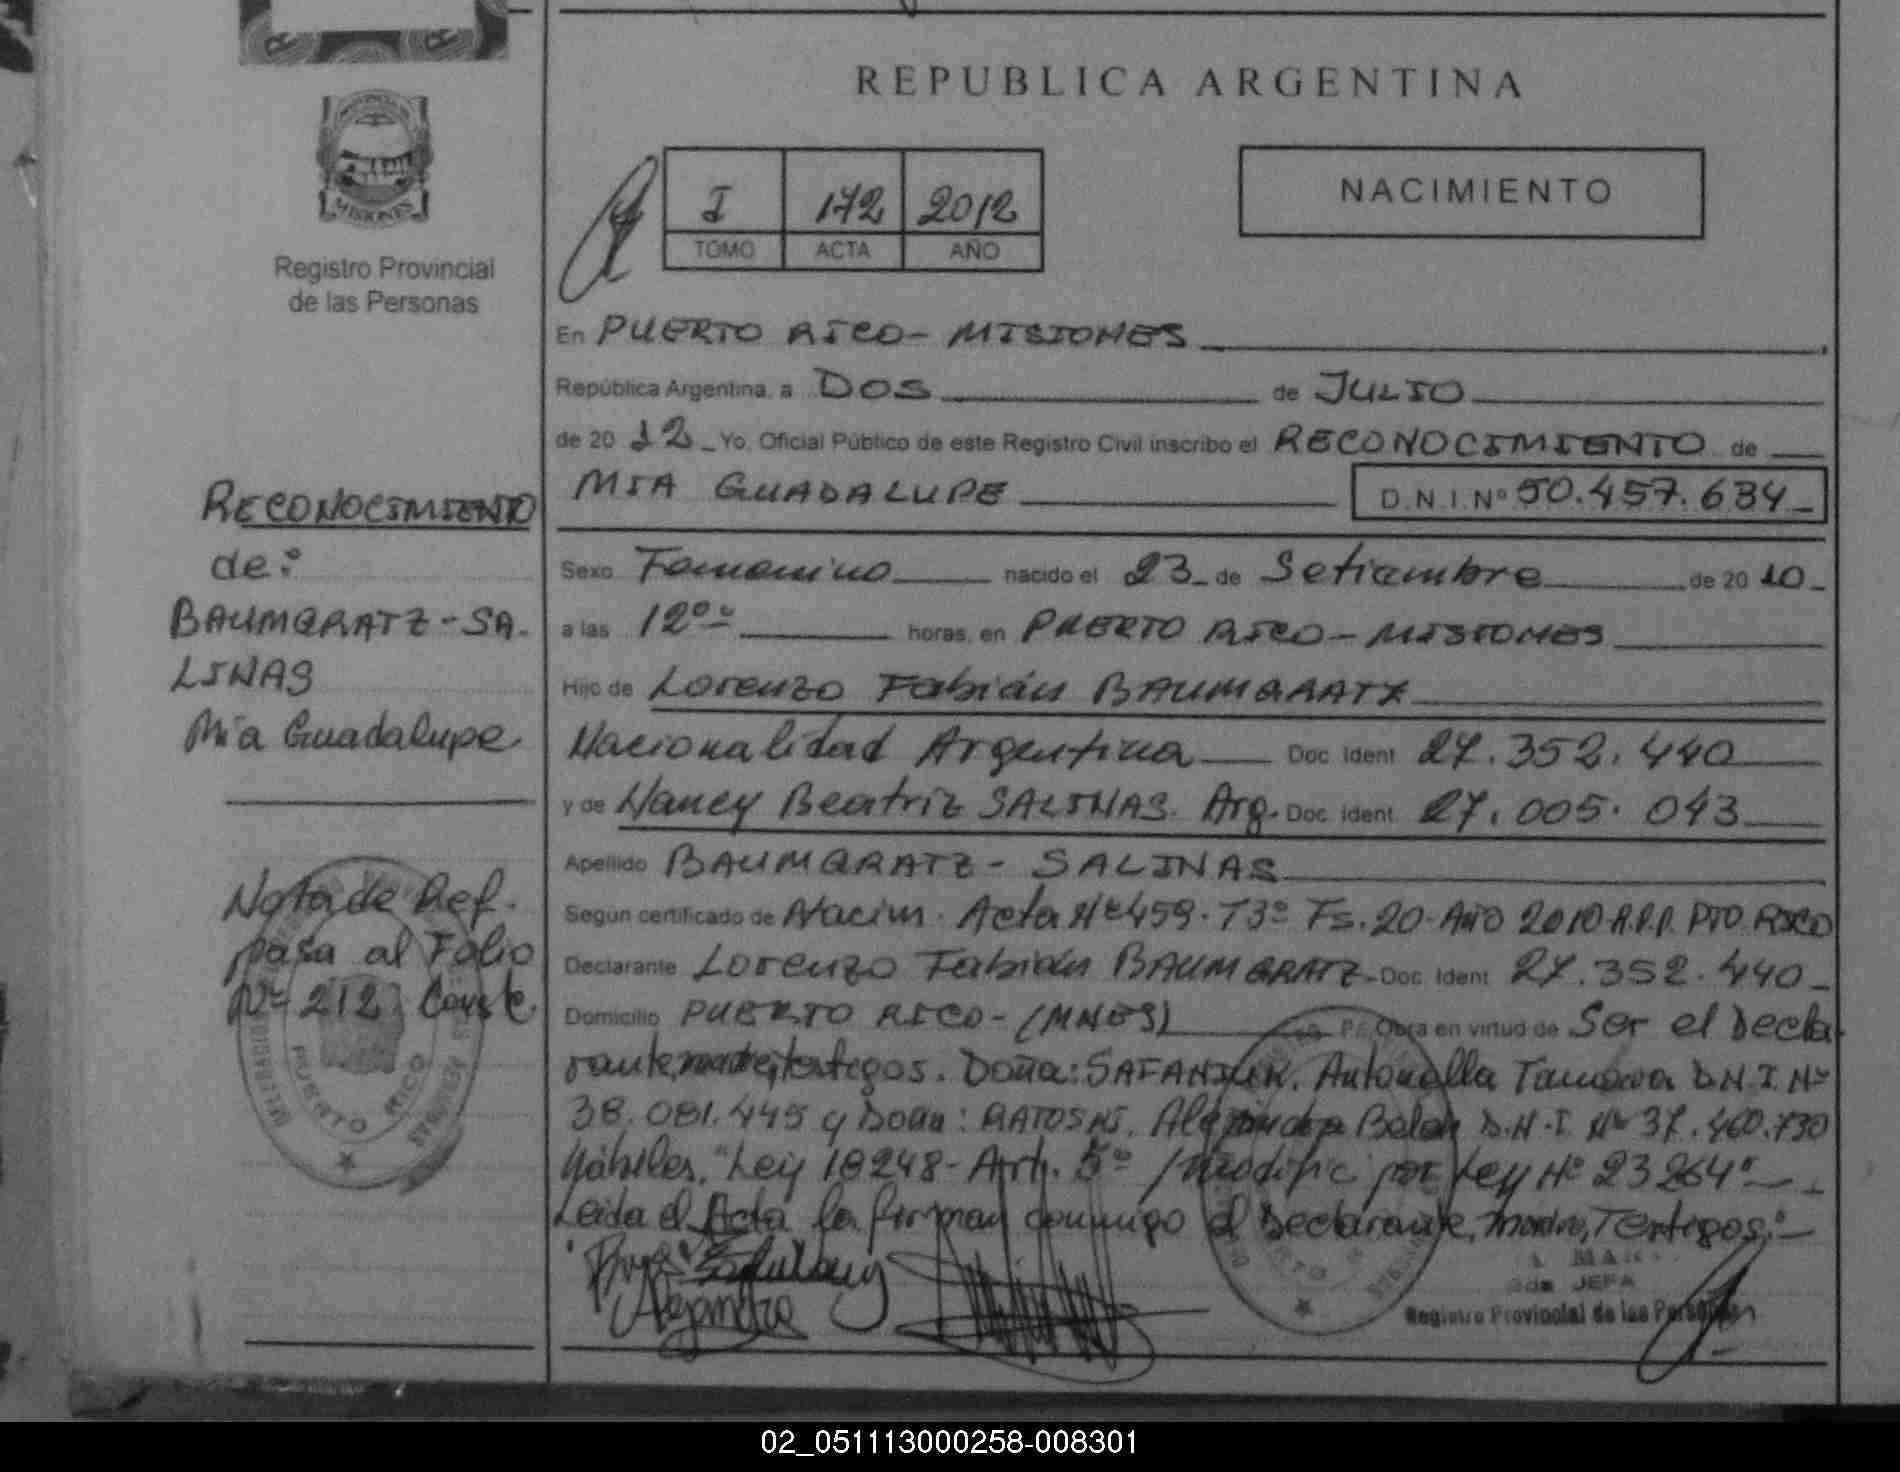 REPUBLICA ARGENTINA
MISIONES
Registro Provincial
de las Personas
I 172 2012
TOMO ACTA AÑO
NACIMIENTO
En PUERTO RICO - MISIONES
República Argentina, a DOS de JULIO
de 20 12 Yo, Oficial Público de este Registro Civil inscribo el RECONOCIMIENTO de
MIA GUADALUPE D.N.I. Nº 50.457.684
Sexo Femenino nacido el 23 de Setiembre de 20 10
a las 12 horas, en PUERTO RICO - MISIONES
Hijo de Lorenzo Fabián BAUMGRATZ
Nacionalidad Argentina Doc. Ident. 27.352.440
y de Nancy Beatriz SALINAS. Arg. Doc. Ident. 27.005.043
Apellido BAUMGRATZ - SALINAS
Según certificado de Nacim. Acta Nº 459. Tº 3º Fs. 20 - Año 2010 R.P.P. PTO. RICO
Declarante Lorenzo Fabián BAUMGRATZ Doc. Ident. 27.352.440
Domicilio PUERTO RICO - (MNES) Obra en virtud de Ser el Decla
rante, madre, testigos. Doña: Antonella D.N.I. Nº
38.081.445 y Doña: Alejandra Belen D.N.I. Nº 37.460.730
Hábiles. "Ley 18248 - Art. 5º modific por Ley Nº 23264"
Leida el Acta la firman conmigo el Declarante, madre, Testigos.
Alejandra
2da JEFA
Registro Provincial de las Personas
RECONOCIMIENTO
de:
BAUMGRATZ - SA-
LINAS
Mía Guadalupe
Nota de Ref.
pasa al Folio
Nº 212 Conste.
PUERTO RICO
02_051113000258-008301